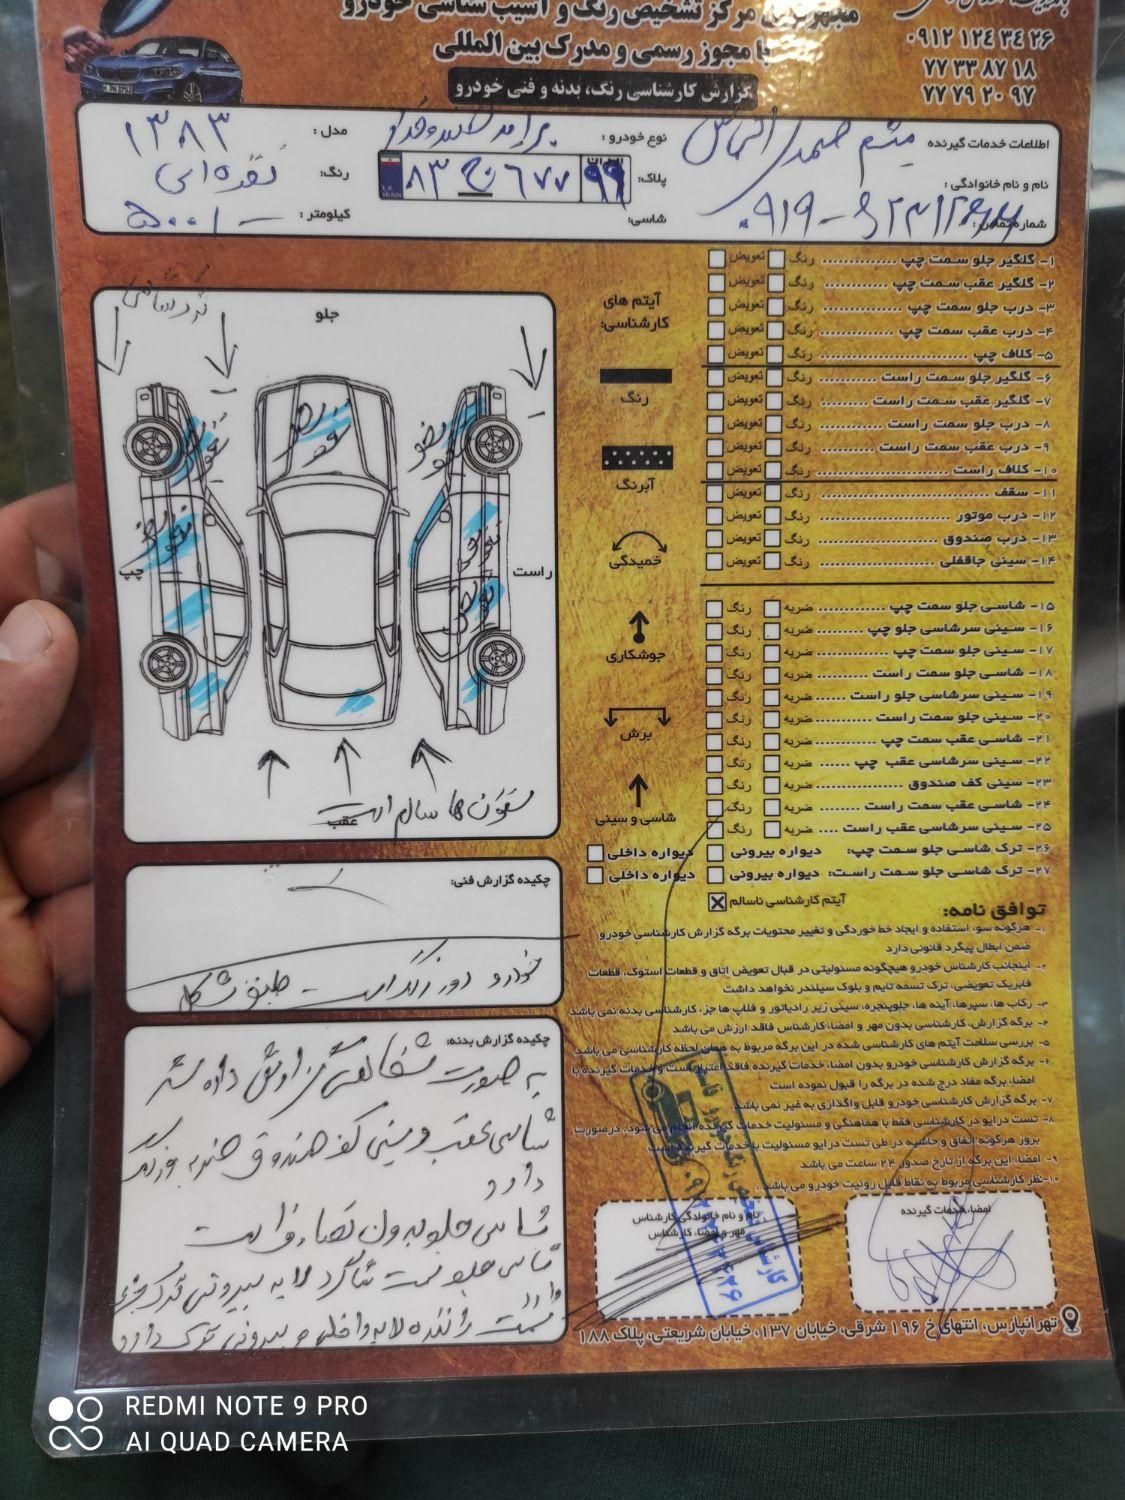 مجهزترین مرکز تشخیص رنگ و آسیب شناسی خودرو
با مجوز رسمی و مدرک بین المللی
گزارش کارشناسی رنگ، بدنه و فنی خودرو
۰۹۱۲ ۱۲۴ ۳۴ ۲۶
۷۷ ۳۳ ۸۷ ۱۸
۷۷ ۷۹ ۲۰ ۹۷
اطلاعات خدمات گیرنده
نام و نام خانوادگی: میثم
شماره تماس:
نوع خودرو:
پلاک: ۸۳ ج ۶۷۷ ایران ۹۹
I.R. IRAN
شاسی:
مدل: ۱۳۸۳
رنگ: نقره‌ای
کیلومتر:
۱- گلگیر جلو سمت چپ ............... رنگ تعویض
۲- گلگیر عقب سمت چپ ............ رنگ تعویض
۳- درب جلو سمت چپ ............... رنگ تعویض
۴- درب عقب سمت چپ .............. رنگ تعویض
۵- کلاف چپ ........................ رنگ تعویض
۶- گلگیر جلو سمت راست ............ رنگ تعویض
۷- گلگیر عقب سمت راست .......... رنگ تعویض
۸- درب جلو سمت راست ............. رنگ تعویض
۹- درب عقب سمت راست ............ رنگ تعویض
۱۰- کلاف راست ..................... رنگ تعویض
۱۱- سقف ........................... رنگ تعویض
۱۲- درب موتور ...................... رنگ تعویض
۱۳- درب صندوق .................... رنگ تعویض
۱۴- سینی جاقفلی ................... رنگ تعویض
۱۵- شاسی جلو سمت چپ ............. ضربه رنگ
۱۶- سینی سرشاسی جلو چپ ......... ضربه رنگ
۱۷- سینی جلو سمت چپ ............. ضربه رنگ
۱۸- شاسی جلو سمت راست .......... ضربه رنگ
۱۹- سینی سرشاسی جلو راست ...... ضربه رنگ
۲۰- سینی جلو سمت راست .......... ضربه رنگ
۲۱- شاسی عقب سمت چپ ........... ضربه رنگ
۲۲- سینی سرشاسی عقب چپ ...... ضربه رنگ
۲۳- سینی کف صندوق ................ ضربه رنگ
۲۴- شاسی عقب سمت راست ........ ضربه رنگ
۲۵- سینی سرشاسی عقب راست .... ضربه رنگ
۲۶- ترک شاسی جلو سمت چپ: دیواره بیرونی دیواره داخلی
۲۷- ترک شاسی جلو سمت راست: دیواره بیرونی دیواره داخلی
آیتم کارشناسی ناسالم
آیتم های
کارشناسی:
رنگ
آبرنگ
خمیدگی
جوشکاری
برش
شاسی و سینی
جلو
راست
چپ
عقب
تعویض
تعویض
تعویض
ستون ها سالم است
چکیده گزارش فنی:
خودرو دور رنگ است
چکیده گزارش بدنه:
به صورت شفاهی گزارش داده شد
شاسی عقب و سینی کف صندوق ضربه و رنگ
دارد
شاسی جلو بدون تصادف است
شاسی جلو سمت شاگرد لایه بیرونی ترک جزئی
دارد
سمت راننده لایه داخلی و بیرونی ترک دارد
توافق نامه:
۱- هرگونه سو، استفاده و ایجاد خط خوردگی و تغییر محتویات برگه گزارش کارشناسی خودرو
ضمن ابطال پیگرد قانونی دارد
۲- اینجانب کارشناس خودرو هیچگونه مسئولیتی در قبال تعویض اتاق و قطعات استوک، قطعات
فابریک تعویضی، ترک تسمه تایم و بلوک سیلندر نخواهد داشت
۳- رکاب ها، سپرها، آینه ها، جلوپنجره، سینی زیر رادیاتور و فلاپ ها جز، کارشناسی بدنه نمی باشد
۴- برگه گزارش، کارشناسی بدون مهر و امضا، کارشناس فاقد ارزش می باشد
۵- بررسی سلامت آیتم های کارشناسی شده در این برگه مربوط به همان لحظه کارشناسی می باشد
۶- برگه گزارش کارشناسی خودرو بدون امضا، خدمات گیرنده فاقد اعتبار است و خدمات گیرنده با
امضا، برگه مفاد درج شده در برگه را قبول نموده است
۷- برگه گزارش کارشناسی خودرو قابل واگذاری به غیر نمی باشد.
۸- تست درایو در کارشناسی فقط با هماهنگی و مسئولیت خدمات گیرنده انجام می شود، درصورت
بروز هرگونه اتفاق و حاشیه در طی تست درایو مسئولیت با خدمات گیرنده است
۹- امضا، این برگه از تاریخ صدور ۲۴ ساعت می باشد
۱۰- نظر کارشناسی مربوط به نقاط قابل رویت خودرو می باشد.
امضا، خدمات گیرنده
نام و نام خانوادگی کارشناس
مهر و امضا، کارشناس
تهرانپارس، انتهای خ ۱۹۶ شرقی، خیابان ۱۳۷، خیابان شریعتی، پلاک ۱۸۸
REDMI NOTE 9 PRO
AI QUAD CAMERA